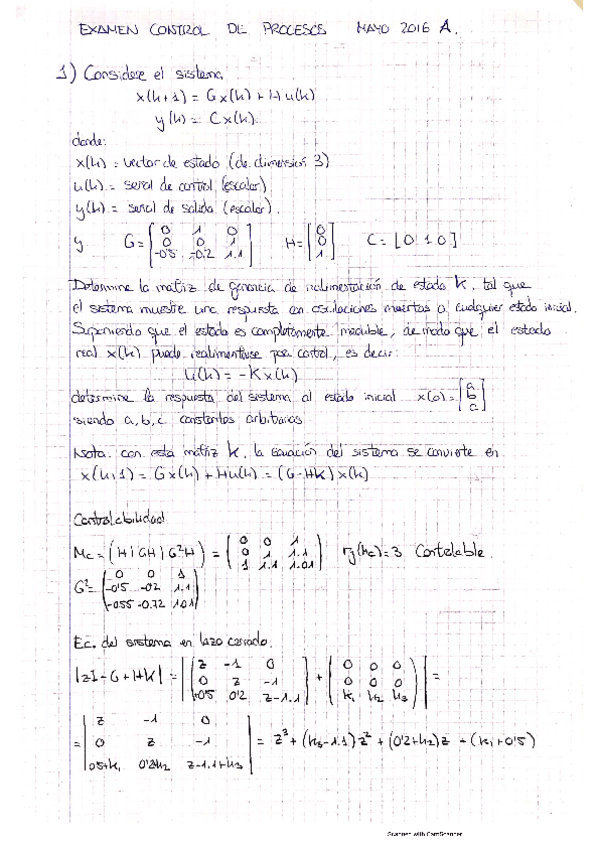 EXAMEN CONTROL DE PROCESOS MAYO 2016 A.
1) Considere el sistema
x(k+1) = Gx(k) + Hu(k)
y(k) = Cx(k).
donde:
x(k) = vector de estado (de dimensión 3)
u(k) = señal de control (escalar)
y(k) = señal de salida (escalar).
y G= [0 1 0; 0 0 1; -0'5 -0.2 1.1] H= [0; 0; 1] C= [0 1 0]
Determine la matriz de ganancia de realimentación de estado K, tal que
el sistema muestre una respuesta con oscilaciones muertas a cualquier estado inicial.
Suponiendo que el estado es completamente medible, de modo que el estado
real x(k) puede realimentarse para control, es decir:
u(k) = -Kx(k)
determine la respuesta del sistema al estado inicial x(0) = [a; b; c]
siendo a, b, c constantes arbitrarias
Nota: con esta matriz K, la ecuación del sistema se convierte en
x(k+1) = Gx(k) + Hu(k) = (G-HK)x(k)
Controlabilidad
Mc = (H | GH | G²H) = (0 0 1; 0 1 1.1; 1 1.1 1.01) rg(Mc)=3 Controlable.
G² = (0 0 1; -0'5 -0'2 1.1; -0.55 -0.72 1.01)
Ec. del sistema en lazo cerrado.
|zI - G + HK| = |(z -1 0; 0 z -1; +0'5 0'2 z-1.1) + (0 0 0; 0 0 0; k₁ k₂ k₃)| =
= |z -1 0; 0 z -1; 0'5+k₁ 0'2k₂ z-1.1+k₃| = z³ + (k₃-1.1)z² + (0'2+k₂)z + (k₁+0'5)
Scanned with CamScanner